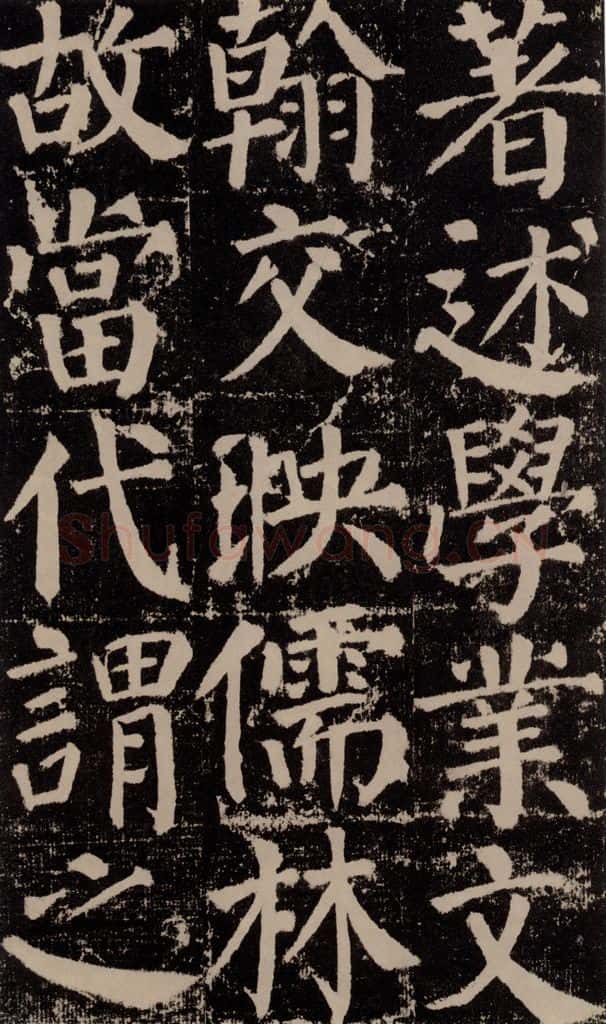 著述學業文
翰交映儒林
故當代謂之
Shufawang.cn